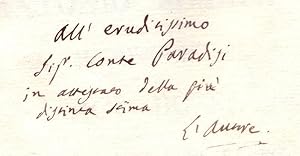 All' eruditissimo
Sigr. Conte Paradisi
in attestato della più
distinta stima
L'Autore.